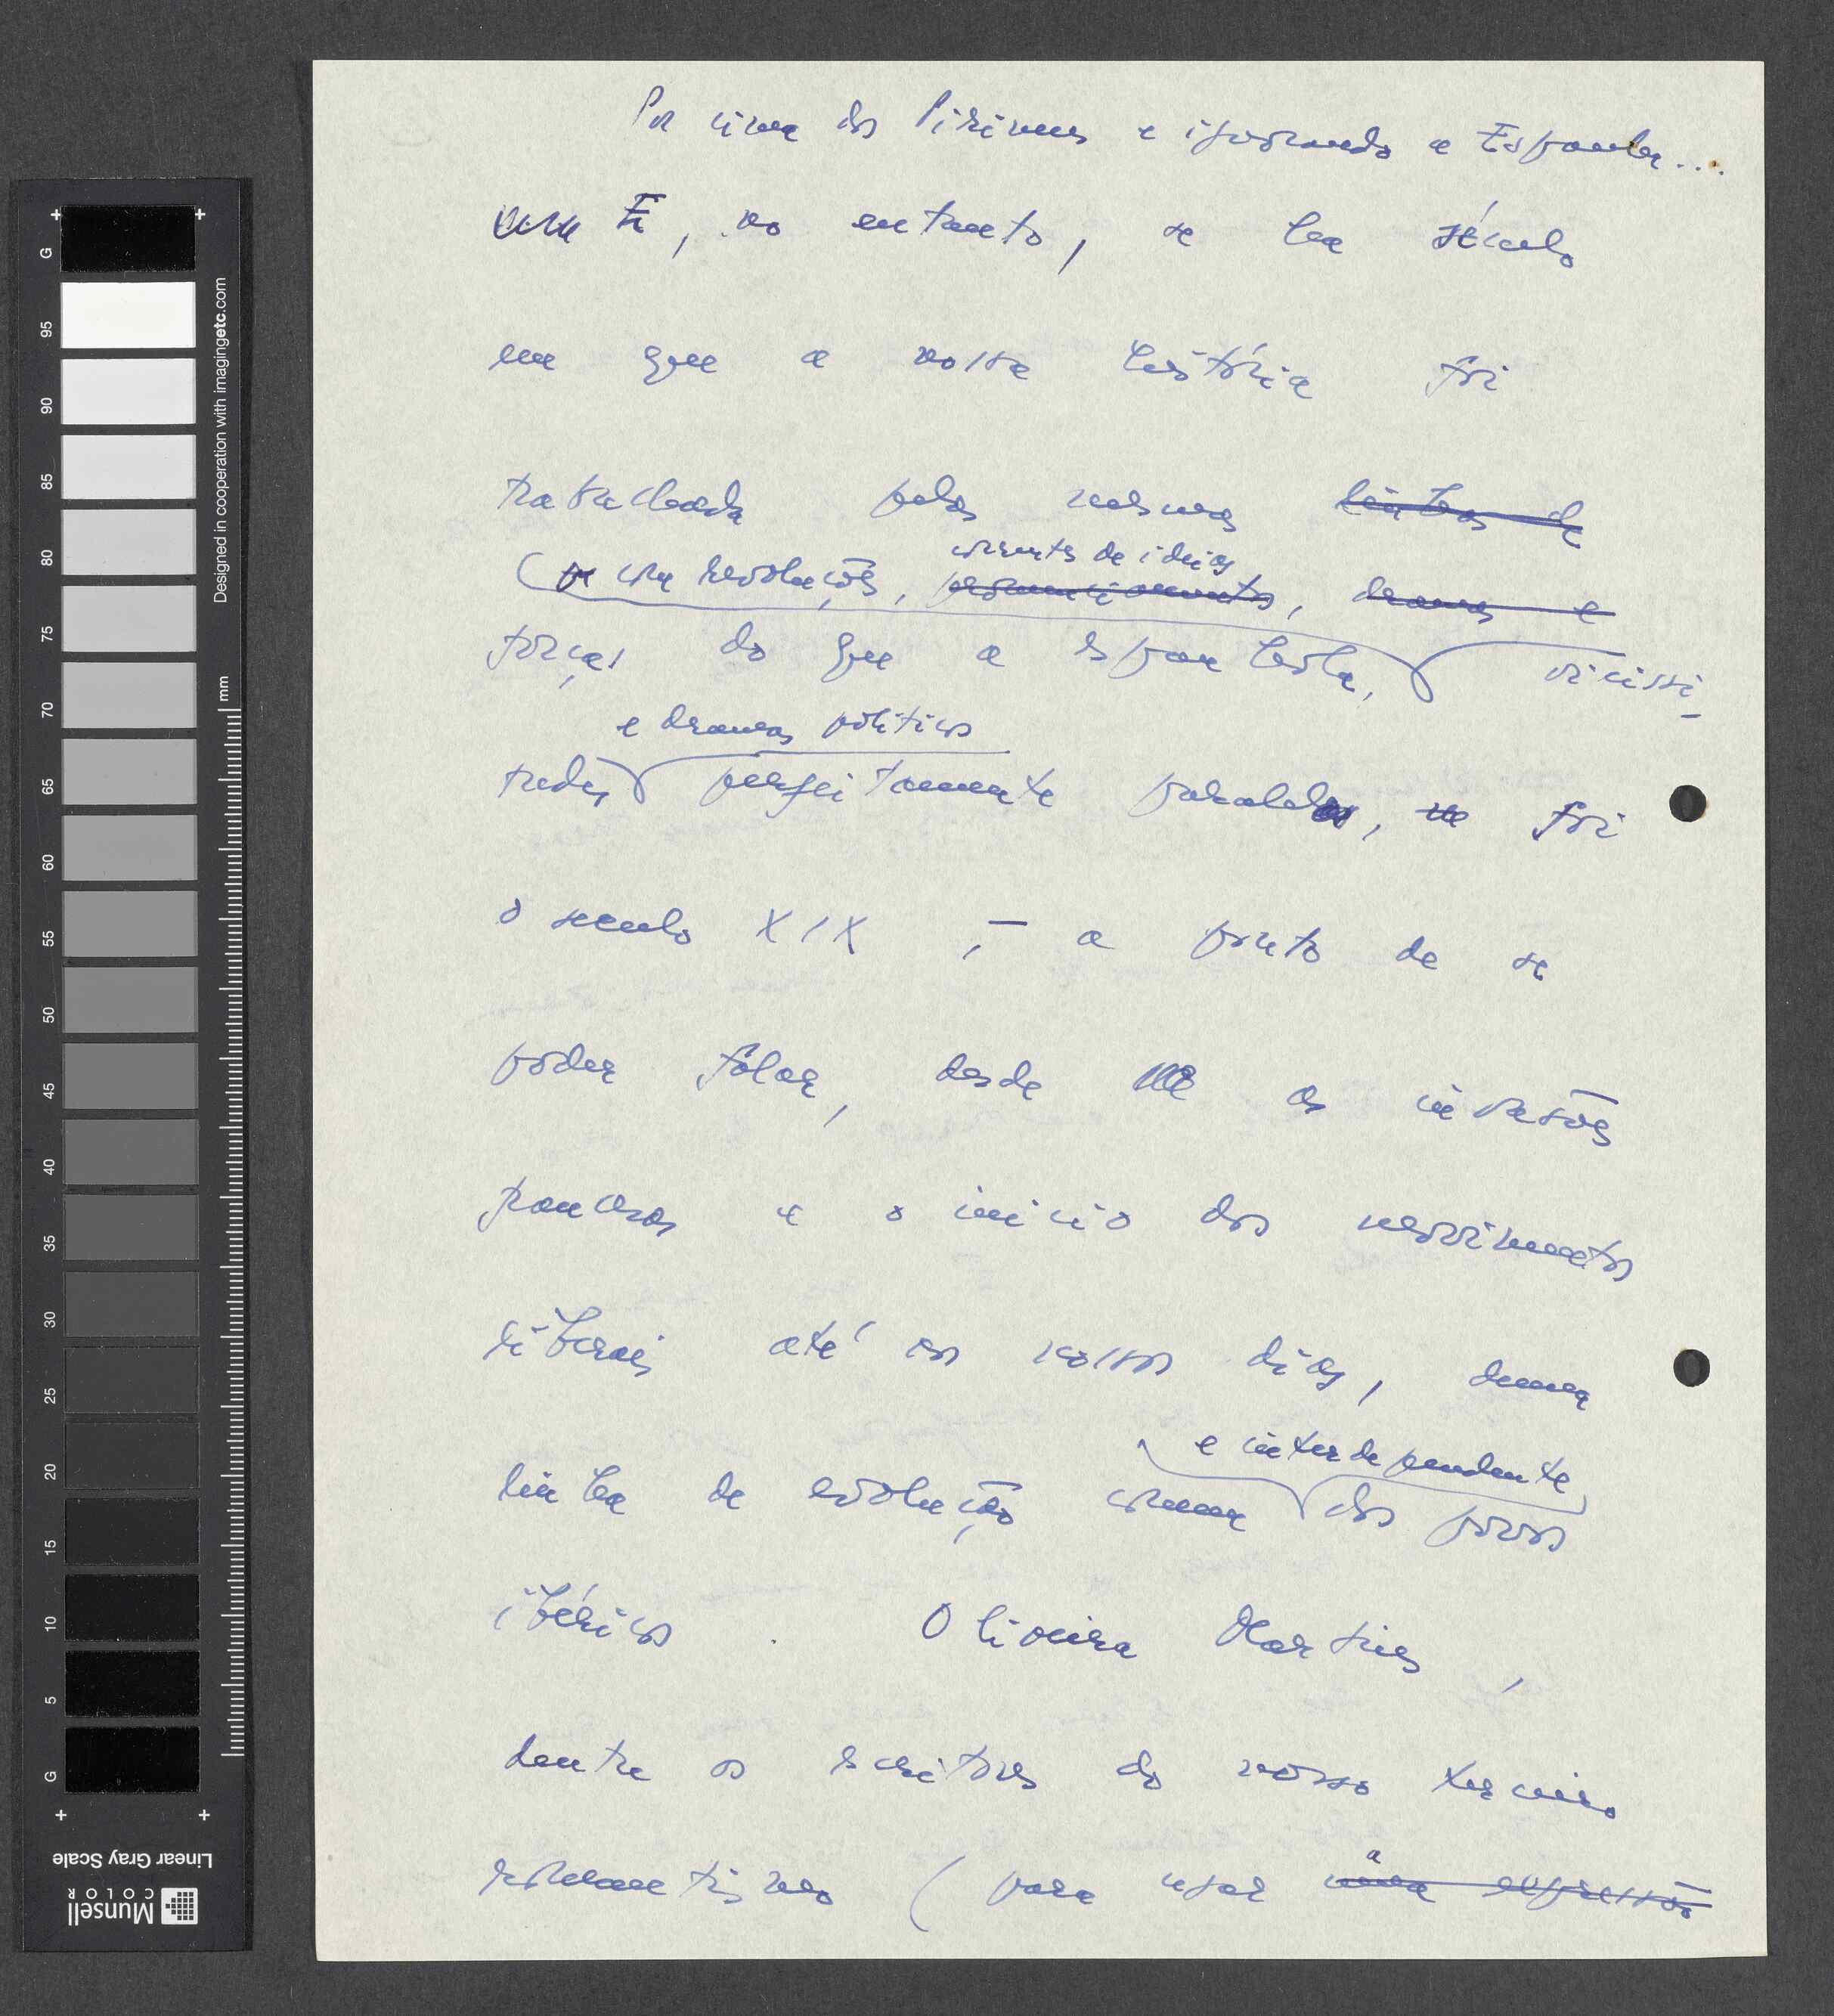 Por cima dos Pirineus e ignorando a Espanha...
E, no entanto, se há século
em que a nossa história foi
trabalhada pelas mesmas linhas de
(com revoluções, correntes de ideias
pronunciamentos, dramas e
forças do que a espanhola, vicissi-
e dramas políticos
tudes perfeitamente paralelas, foi
o seculo XIX, - a ponto de se
poder falar, desde as invasões
francesas e o inicio dos movimentos
liberais até aos nossos dias, duma
e interdependente
linha de evolução comum dos povos
ibéricos. Oliveira Martins,
dentre os escritores do nosso terceiro
romantismo (para usar a uma expressão
G 95 90 85 80 75 70 65 60 55 50 45 40 35 30 25 20 15 10 5 G
mm
Designed in cooperation with imagingetc.com
Linear Gray Scale
Munsell
COLOR